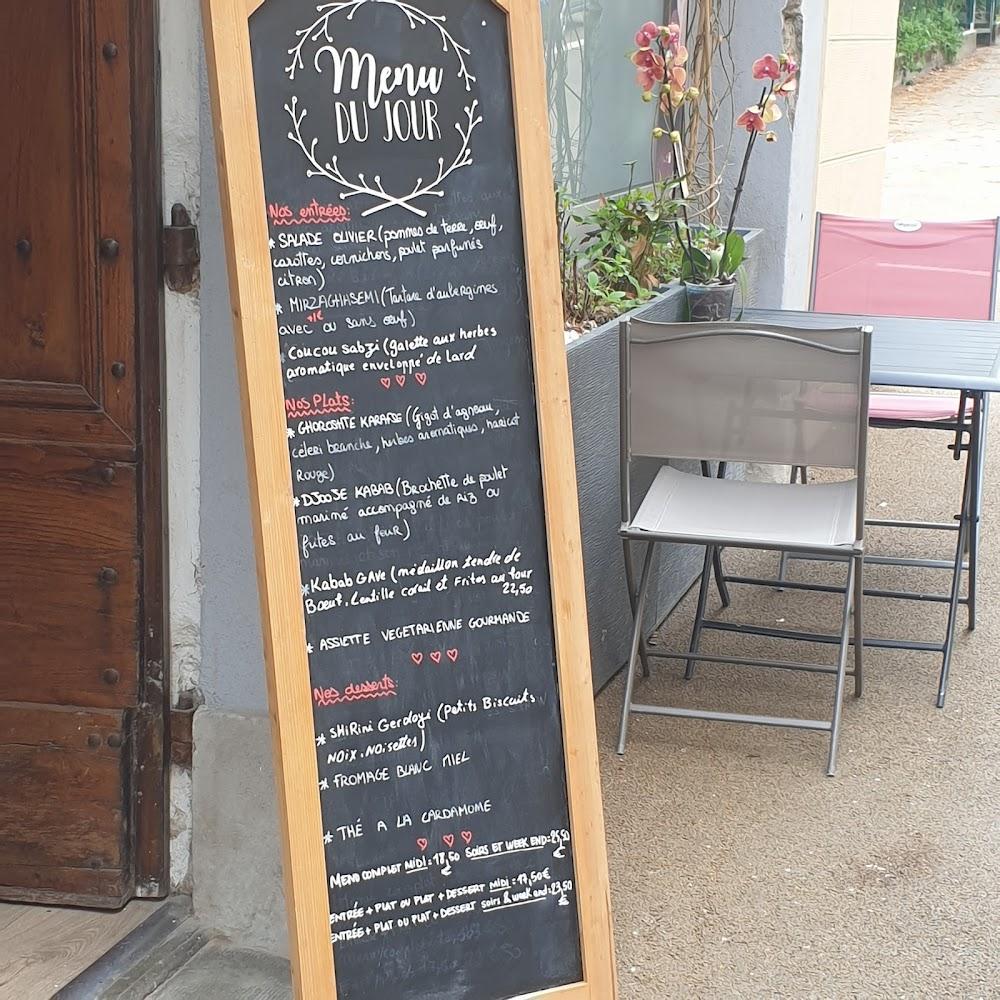 Menu
DU JOUR
Nos entrées:
* SALADE OLIVIER (pommes de terre, œuf,
carottes, cornichons, poulet parfumés
citron)
* MIRZAGHASEMI (Tartare d'aubergines
avec ou sans œuf)
Coucou Sabzi (galette aux herbes
aromatique enveloppé de lard
Nos Plats:
* GHOROSHTE KARAFSE (Gigot d'agneau,
céleri branche, herbes aromatiques, haricot
Rouge)
* DJOOJE KABAB (Brochette de poulet
mariné accompagné de Riz ou
frites au four)
* Kabab GAVE (médaillon tendre de
Bœuf. Lentille corail et Frites au four
22,50
* ASSIETTE VEGETARIENNE GOURMANDE
Nos desserts:
* SHIRini Gerdoyi (Petits Biscuits
NOIX. NOisettes)
* FROMAGE BLANC MIEL
* THÉ A LA CARDAMOME
MENU COMPLET MIDI = 18,50 € SOIRS ET WEEK END = 25,50 €
ENTRÉE + PLAT OU PLAT + DESSERT MIDI = 17,50€
ENTRÉE + PLAT OU PLAT + DESSERT soirs & week end = 23,50 €